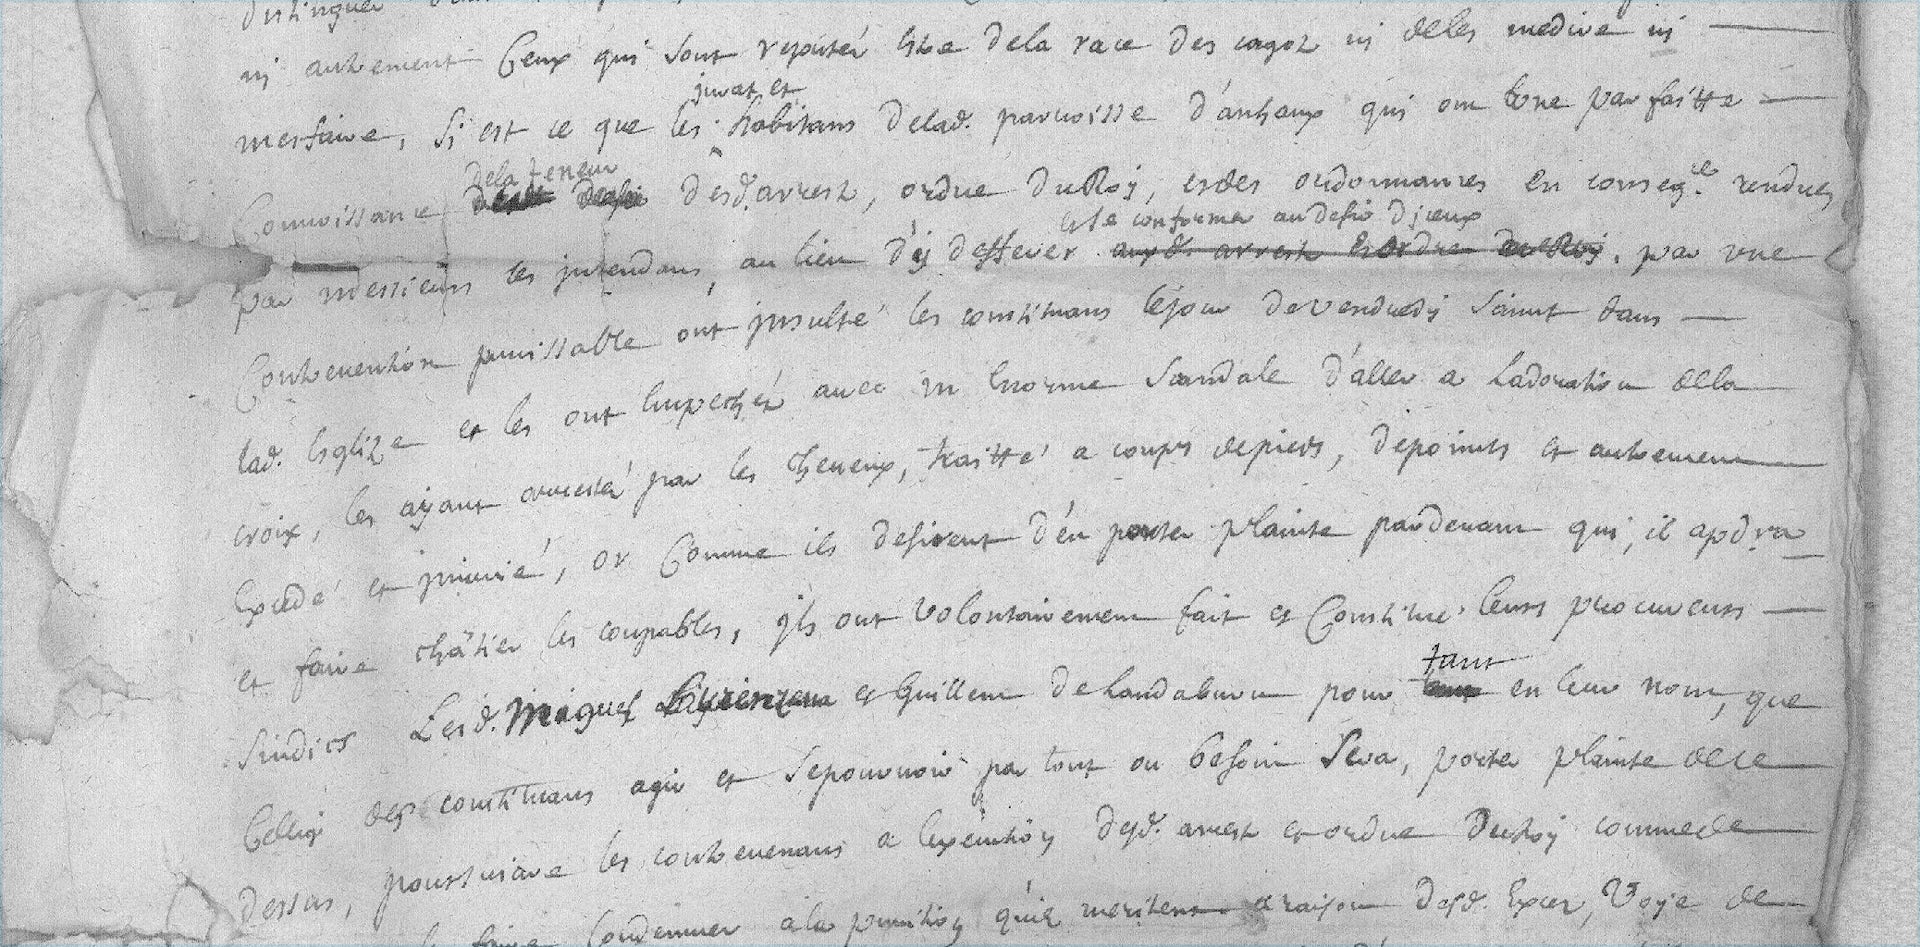 distinguer
ny autrement Ceux qui sont reputés estre dela race des cagotz ny deles medire ny
mesfaire, si est ce que les jurat et habitans delad. parroisse d'anhaux qui ont une parfaitte
Connoissance dela teneur desd. arrest, ordre du Roy, et des ordonnances en conseq.ce rendues
par messieurs les jntendans, au lieu d'y defferer et se conformer au desir d'jceux aux d. arrests et ordre du Roy, par une
Contrevention punissable ont jnsulté les constituans le jour de vendredy saint dans
lad. Esglize et les ont Empeschéz avec un Enorme scandale d'aller a Ladoration dela
croix, les ayant arresté par les cheveux, traitté a coups de pieds, de points et autrement
Excedé et jnjurié, or Comme ils desirent d'en porter plainte pardevant qui, il apdra
et faire châtier les coupables, jls ont volontairement fait et Constitué leurs procureurs
sindics Lesd. Miguel et Guillem de Landaburu pour tant en leur nom, que
Celluy des constituans agir et se pourvoir par tout ou besoin sera, porter plainte de ce
dessus, poursuivre les contrevenans a l'exécution desd. arrest et ordre du Roy comme de
faire Condemner a la punition qu'ils meritent a raison desd. Excez, voye de